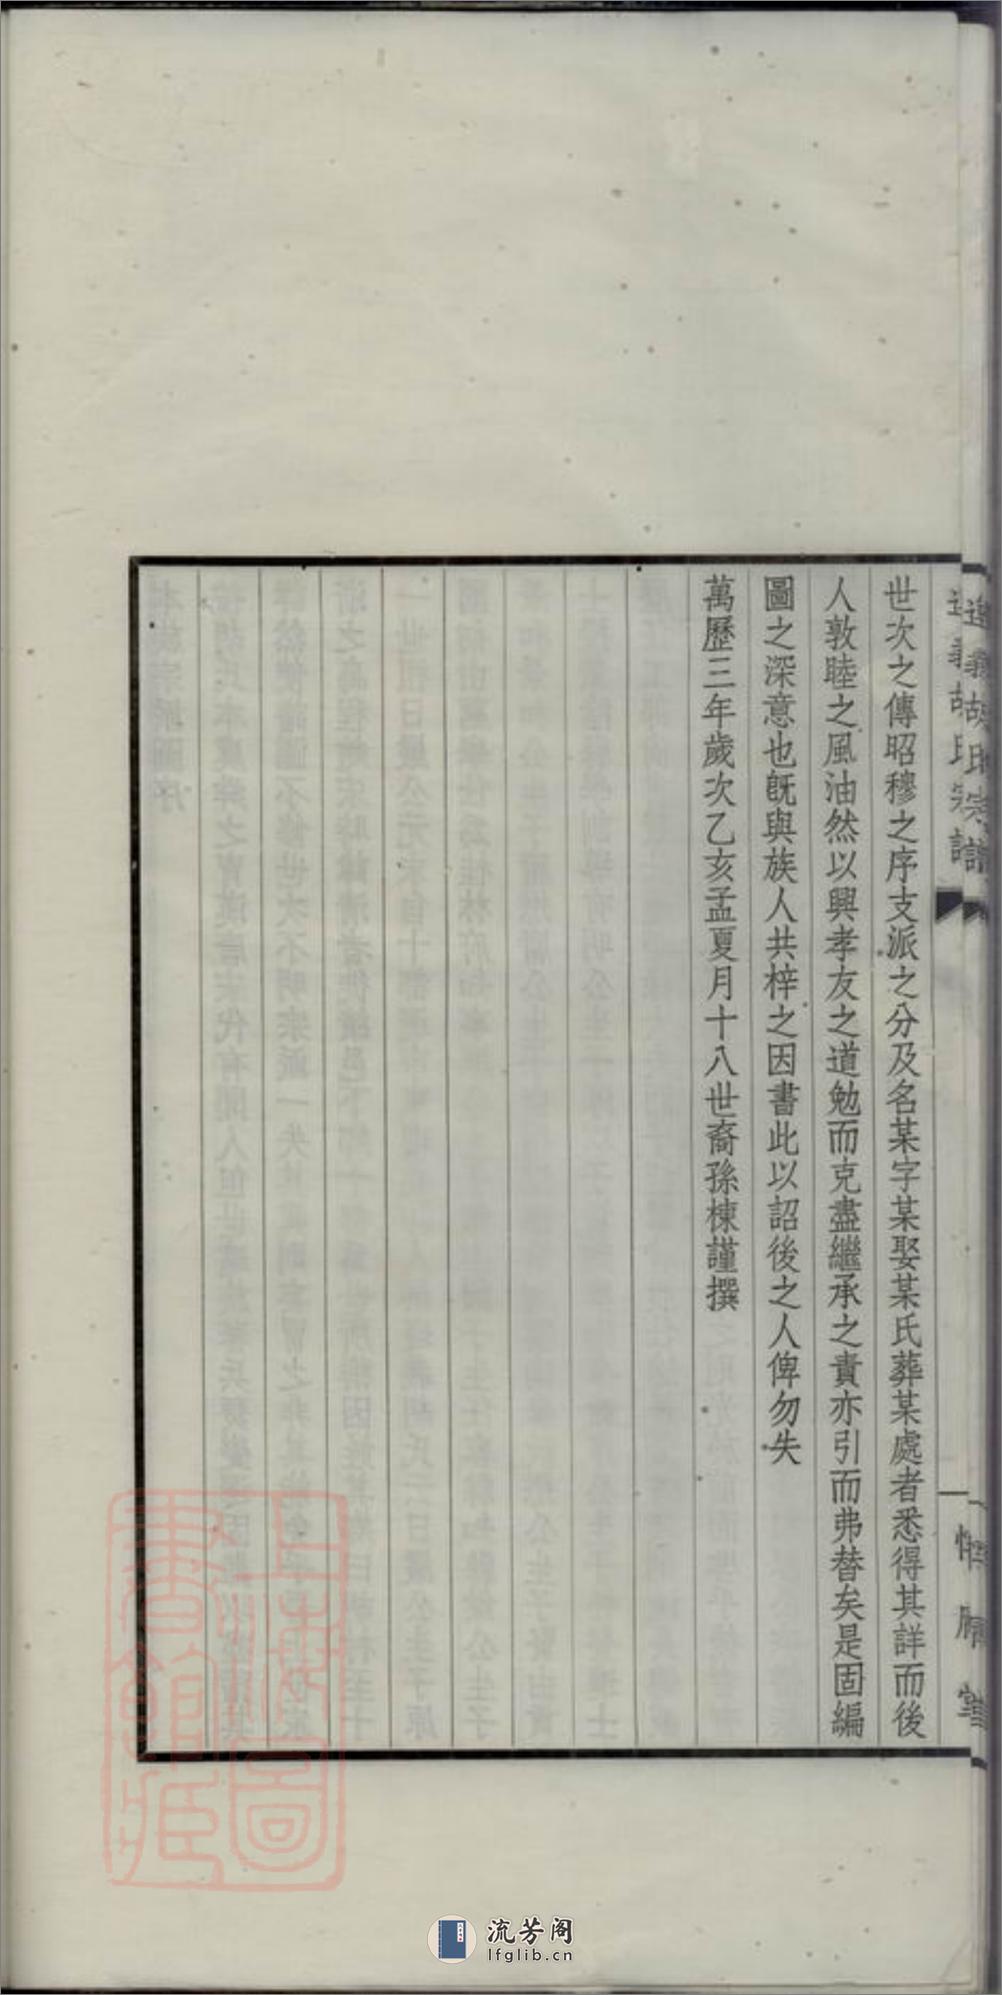 世次之傳昭穆之序支派之分及名某字某娶某氏葬某處者悉得其詳而後
人敦睦之風油然以興孝友之道勉而克盡繼承之責亦引而弗替矣是固編
圖之深意也旣與族人共梓之因書此以詔後之人俾勿失
萬歷三年歲次乙亥孟夏月十八世裔孫棟謹撰
上海圖書館藏
流芳阁
lfglib.cn